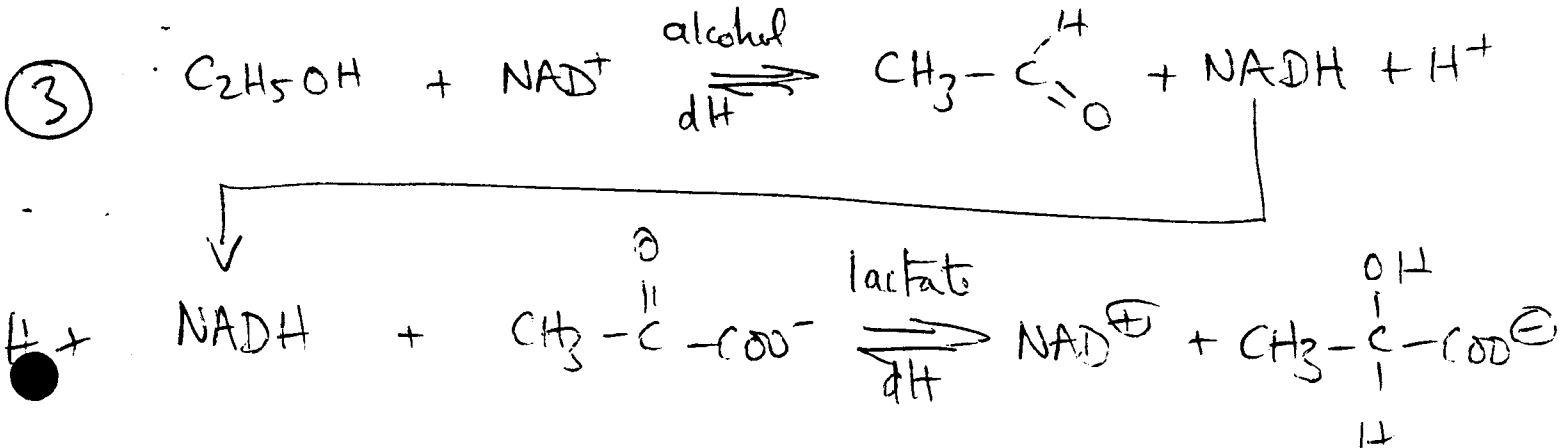 ③ C2H5OH + NAD+ alcohol dH ⇌ CH3-C(-H)(=O) + NADH + H+
H+ NADH + CH3-C(=O)-COO- lactate dH ⇌ NAD⊕ + CH3-C(OH)(H)-COO⊖